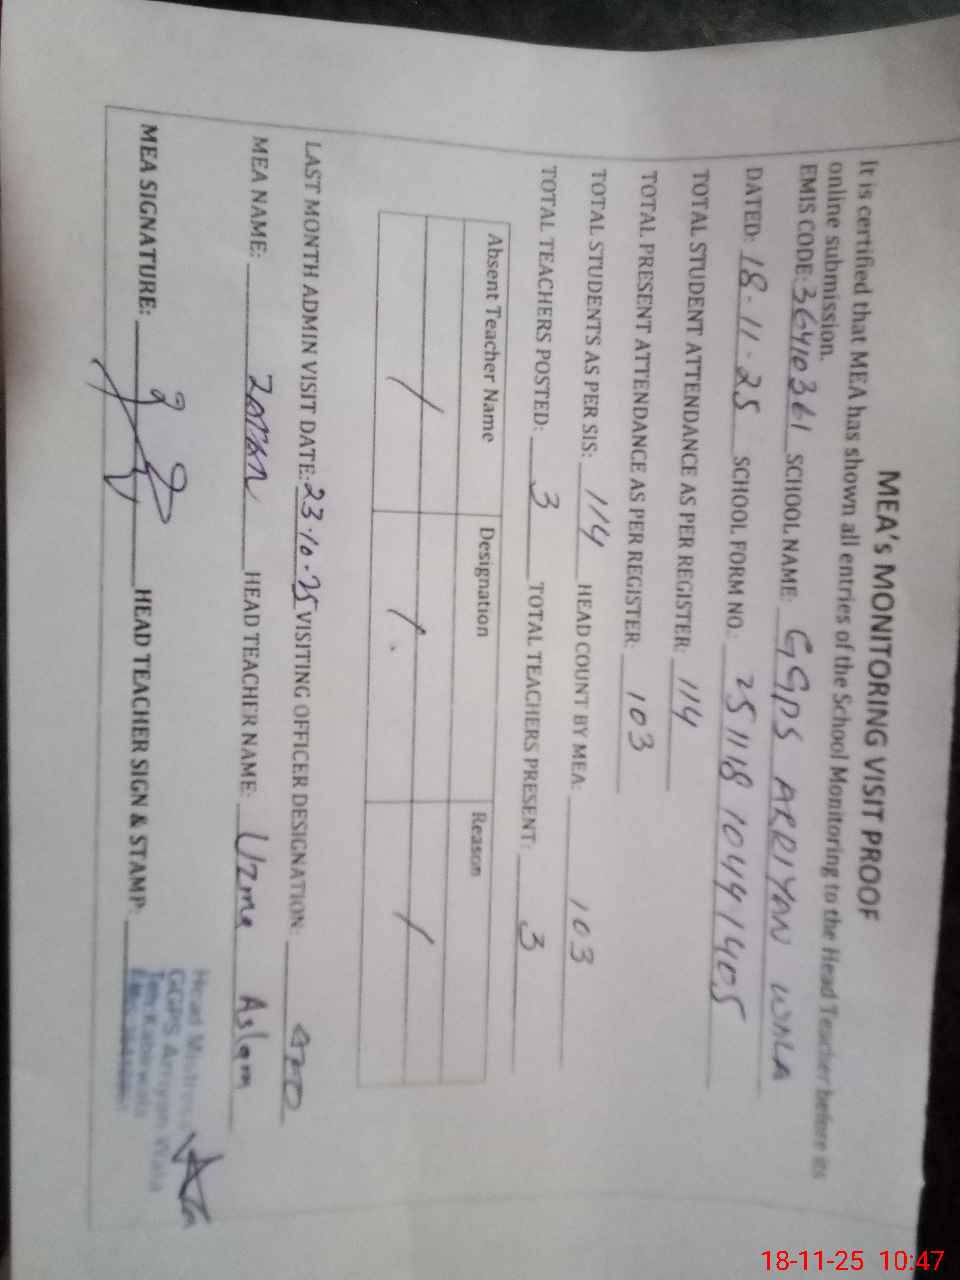 MEA's MONITORING VISIT PROOF
It is certified that MEA has shown all entries of the School Monitoring to the Head Teacher before its
online submission.
EMIS CODE: 36410361 SCHOOL NAME: GGPS ARRIYAN WALA
DATED: 18-11-25 SCHOOL FORM NO.: 25111810441405
TOTAL STUDENT ATTENDANCE AS PER REGISTER: 114
TOTAL PRESENT ATTENDANCE AS PER REGISTER: 103
TOTAL STUDENTS AS PER SIS: 114 HEAD COUNT BY MEA: 103
TOTAL TEACHERS POSTED: 3 TOTAL TEACHERS PRESENT: 3
Absent Teacher Name Designation Reason
/ / /
LAST MONTH ADMIN VISIT DATE: 23-10-25 VISITING OFFICER DESIGNATION:
MEA NAME: HEAD TEACHER NAME: Uzma Aslam
MEA SIGNATURE: HEAD TEACHER SIGN & STAMP:
Head Mistress
GGPS Arriyan Wala
Teh: Kabirwala
18-11-25 10:47